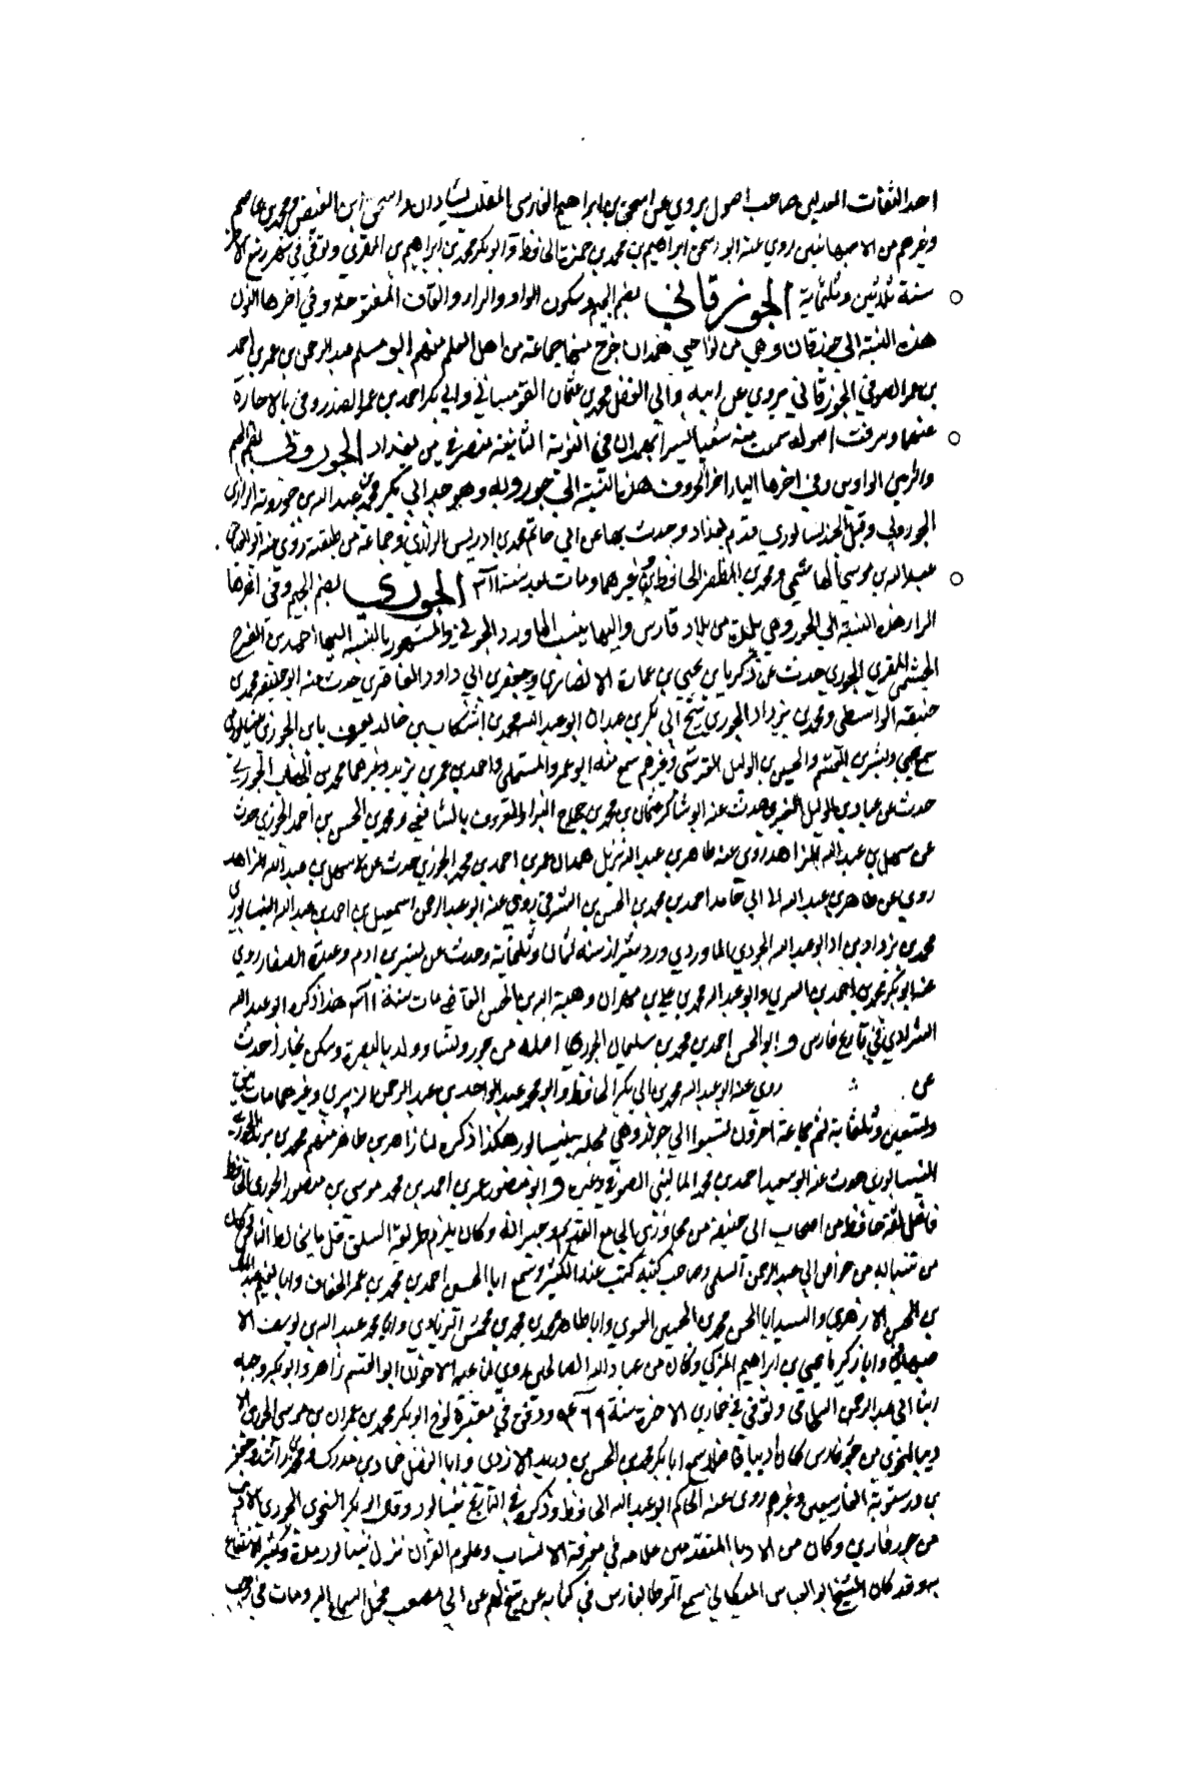 احد الثقات المعدلين صاحب اصول يروي عن اسحق بن ابراهيم الفارسي الملقب بشاذان واسحق ابن الفيض ومحمد بن عاصم
وغيرهم من الاصبهانيين روي عنه ابو اسحق ابراهيم بن محمد بن حمزة الحافظ وابو بكر محمد بن ابراهيم بن المقري وتوفي في شهر ربيع الاخر
سنة ثلاثين وثلثماية الجوزقاني بضم الجيم وسكون الواو والزاء والقاف المفتوحة وفي اخرها النون
هذه النسبة الي جوزقان وهي من نواحي همدان خرج منها جماعة من اهل العلم منهم ابو مسلم عبد الرحمن بن عمر بن احمد
بن عمر الصوفي الجوزقاني يروي عن ابيه وابي الفضل محمد بن عثمان القومساني وابي بكر احمد بن عمر الصندروفي بالاجازة
عنهما وسرقت اصوله سمعت منه شيا يسيرا بهمدان في النوبة الثانية منصرفي من بغداد الجوروي بضم الجيم
والراء بين الواوين وفي اخرها الياء اخر الحروف هذه النسبة الي جورويه وهو جد ابي بكر محمد بن عبد الله بن جورويه الرازي
الجوروي وقيل الجنديسابوري قدم بغداد وحدث بها عن ابي حاتم محمد بن ادريس الرازي وجماعة من طبقته روي عنه ابو القاسم
عبد الله بن موسي الهاشمي ومحمد بن المظفر الحافظ وغيرهما ومات بعد سنة الجوري بضم الجيم وفي اخرها
الراء هذه النسبة الي الجور وهي بلدة من بلاد فارس واليها ينسب الماورد الجوري والمشهور بالنسبة اليها احمد بن الفرج
الجشمي المقري الجوري حدث عن زكريا بن يحيي بن عمارة الانصاري وحفص بن ابي داود الغاضري حدث عنه ابو حنيفة محمد بن
حنيفة الواسطي ومحمد بن يزداد الجوري شيخ ابي بكر بن عبدان ابو عبد الله محمد بن اشكاب بن خالد يعرف بابن الجوري نيسابوري
سمع يحيي وبشر بن القسم والحسين بن الوليد القرشي وغيرهم سمع منه ابو عمرو المستملي واحمد بن عمر بن يزيد وغيرهما محمد بن الخطاب الجوري
حدث عن عباد بن الوليد الغبري حدث عنه ابو شاكر عثمان بن محمد بن حجاج البزاز المعروف بالشافعي ومحمد بن الحسن بن احمد الجوري حدث
عن سهل بن عبد الله الزاهد روي عنه طاهر بن عبد الله نزيل همدان عمر بن احمد بن محمد الجوري حدث عن سهل بن عبد الله الزاهد
روي عن طاهر بن عبد الله ابي حامد احمد بن محمد بن الحسن بن الشرقي روي عنه ابو عبد الرحمن اسمعيل بن احمد بن عبد الله النيسابوري
محمد بن يزداد بن ابو عبد الله الجوري الماوردي ورد شيراز سنة ثمان وثلثماية وحدث عن بشر بن ادم وعبدة الصفار روي
عنه ابو بكر محمد بن احمد بن السري وابو عبد الله محمد بن علي بن مهران وهبة الله بن الحسن القاضي مات سنة هكذا ذكره ابو عبد الله
الشيرازي في تاريخ فارس وابو الحسن احمد بن محمد بن سليمان الجوري اصله من جور ونشا وولد بالبصرة وسكن بخارا حدث
عن روي عنه ابو عبد الله محمد بن ابي بكر الحافظ وابو محمد عبد الواحد بن عبد الرحمن الزبيري وغيرهما مات سنة
وتسعين وثلثماية ثم جماعة اخرون نسبوا الي جور وهي محلة بنيسابور هكذا ذكره لنا زاهر بن طاهر منهم محمد بن يزيد الجوري
النيسابوري حدث عنه ابو سعيد احمد بن محمد الماليني الصوفي وغيره وابو منصور عمر بن احمد بن محمد بن موسي بن منصور الجوري الحافظ
فاضل ثقة حافظ من اصحاب ابي حنيفة من مجاوري الجامع القديم وجيرانه وكان يلزم طريقة السلف قل ما يخالط الناس كان
من خواص ابي عبد الرحمن السلمي وصاحب كتبه كتب عنه الكثير وسمع ابا الحسن احمد بن محمد بن عمر الخفاف وابا نعيم عبد الملك
بن الحسن الازهري والسيد ابا الحسن محمد بن الحسين العلوي وابا طاهر محمد بن محمد بن محمش الزيادي وابا محمد عبد الله بن يوسف الا
صبهاني وابا زكريا يحيي بن ابراهيم المزكي وكان من عباد الله الصالحين روي لنا عنه الاخوان ابو القسم زاهر وابو بكر وجيه
ابنا ابي عبد الرحمن الشحامي وتوفي في جمادي الاخرة سنة ٤٦٩ ودفن في مقبرة نوح ابو بكر محمد بن عمران بن موسي الجوري الا
ديب النحوي من جور فارس كان اديبا فاضلا سمع ابا بكر محمد بن الحسن بن دريد الازدي وابا الفضل حماد بن مدرك ومحمد بن راشد وجعفر
بن درستويه الفارسيين وغيرهم روي عنه الحاكم ابو عبد الله الحافظ وذكره في التاريخ نيسابور وقال ابو بكر النحوي الجوري الاديب
من جور فارس وكان من الادبا المتقدمين علامة في معرفة الانساب وعلوم القران نزل نيسابور مدة وكثير الانتفاع
به وقد كان الشيخ ابو العباس الميكالي سمع الموطا بفارس في كتابه عن شيخ لهم عن ابي مصعب فحمل السماع اليه ومات في رجب